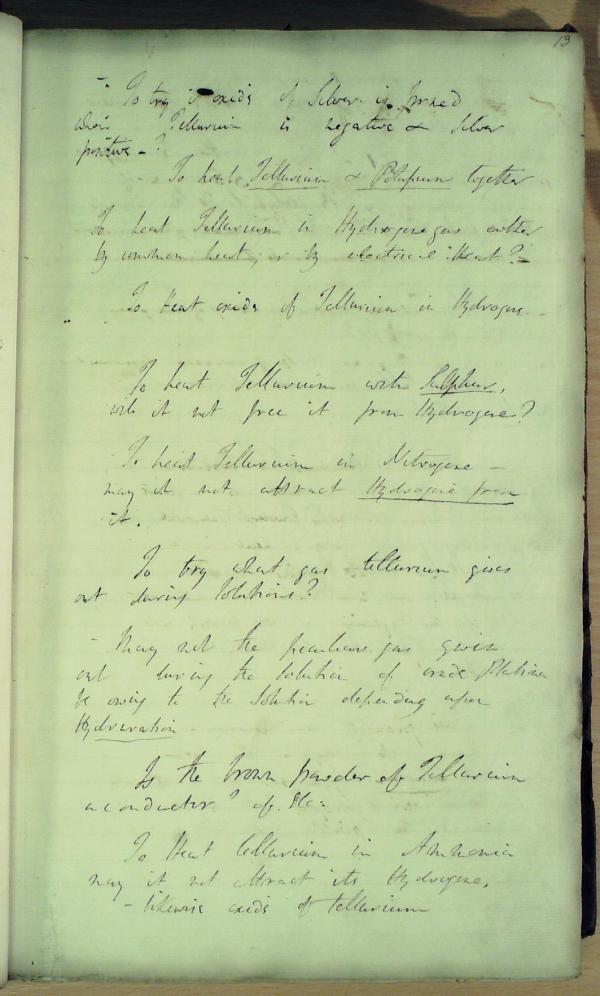 13
- To try if oxide of Silver is formed
when Tellurium is negative & Silver
positive - ?
- To heat Tellurium & Potassium together
To heat Tellurium in Hydrogene gas either
by common heat, or by electrical Heat? -
To Heat oxide of Tellurium in Hydrogene -
To heat Tellurium with Sulphur,
will it not free it from Hydrogene?
To heat Tellurium in Nitrogene -
may it not attract Hydrogene from
it.
To try what gas tellurium gives
out during Solutions?
- May not the peculiar gas given
out during the Solution of crude Platina
be owing to the Solution depending upon
Hydruration
Is the brown powder of Tellurium
a conductor? of
To Heat tellurium in Ammonia
may it not attract its Hydrogene,
- likewise oxide of tellurium